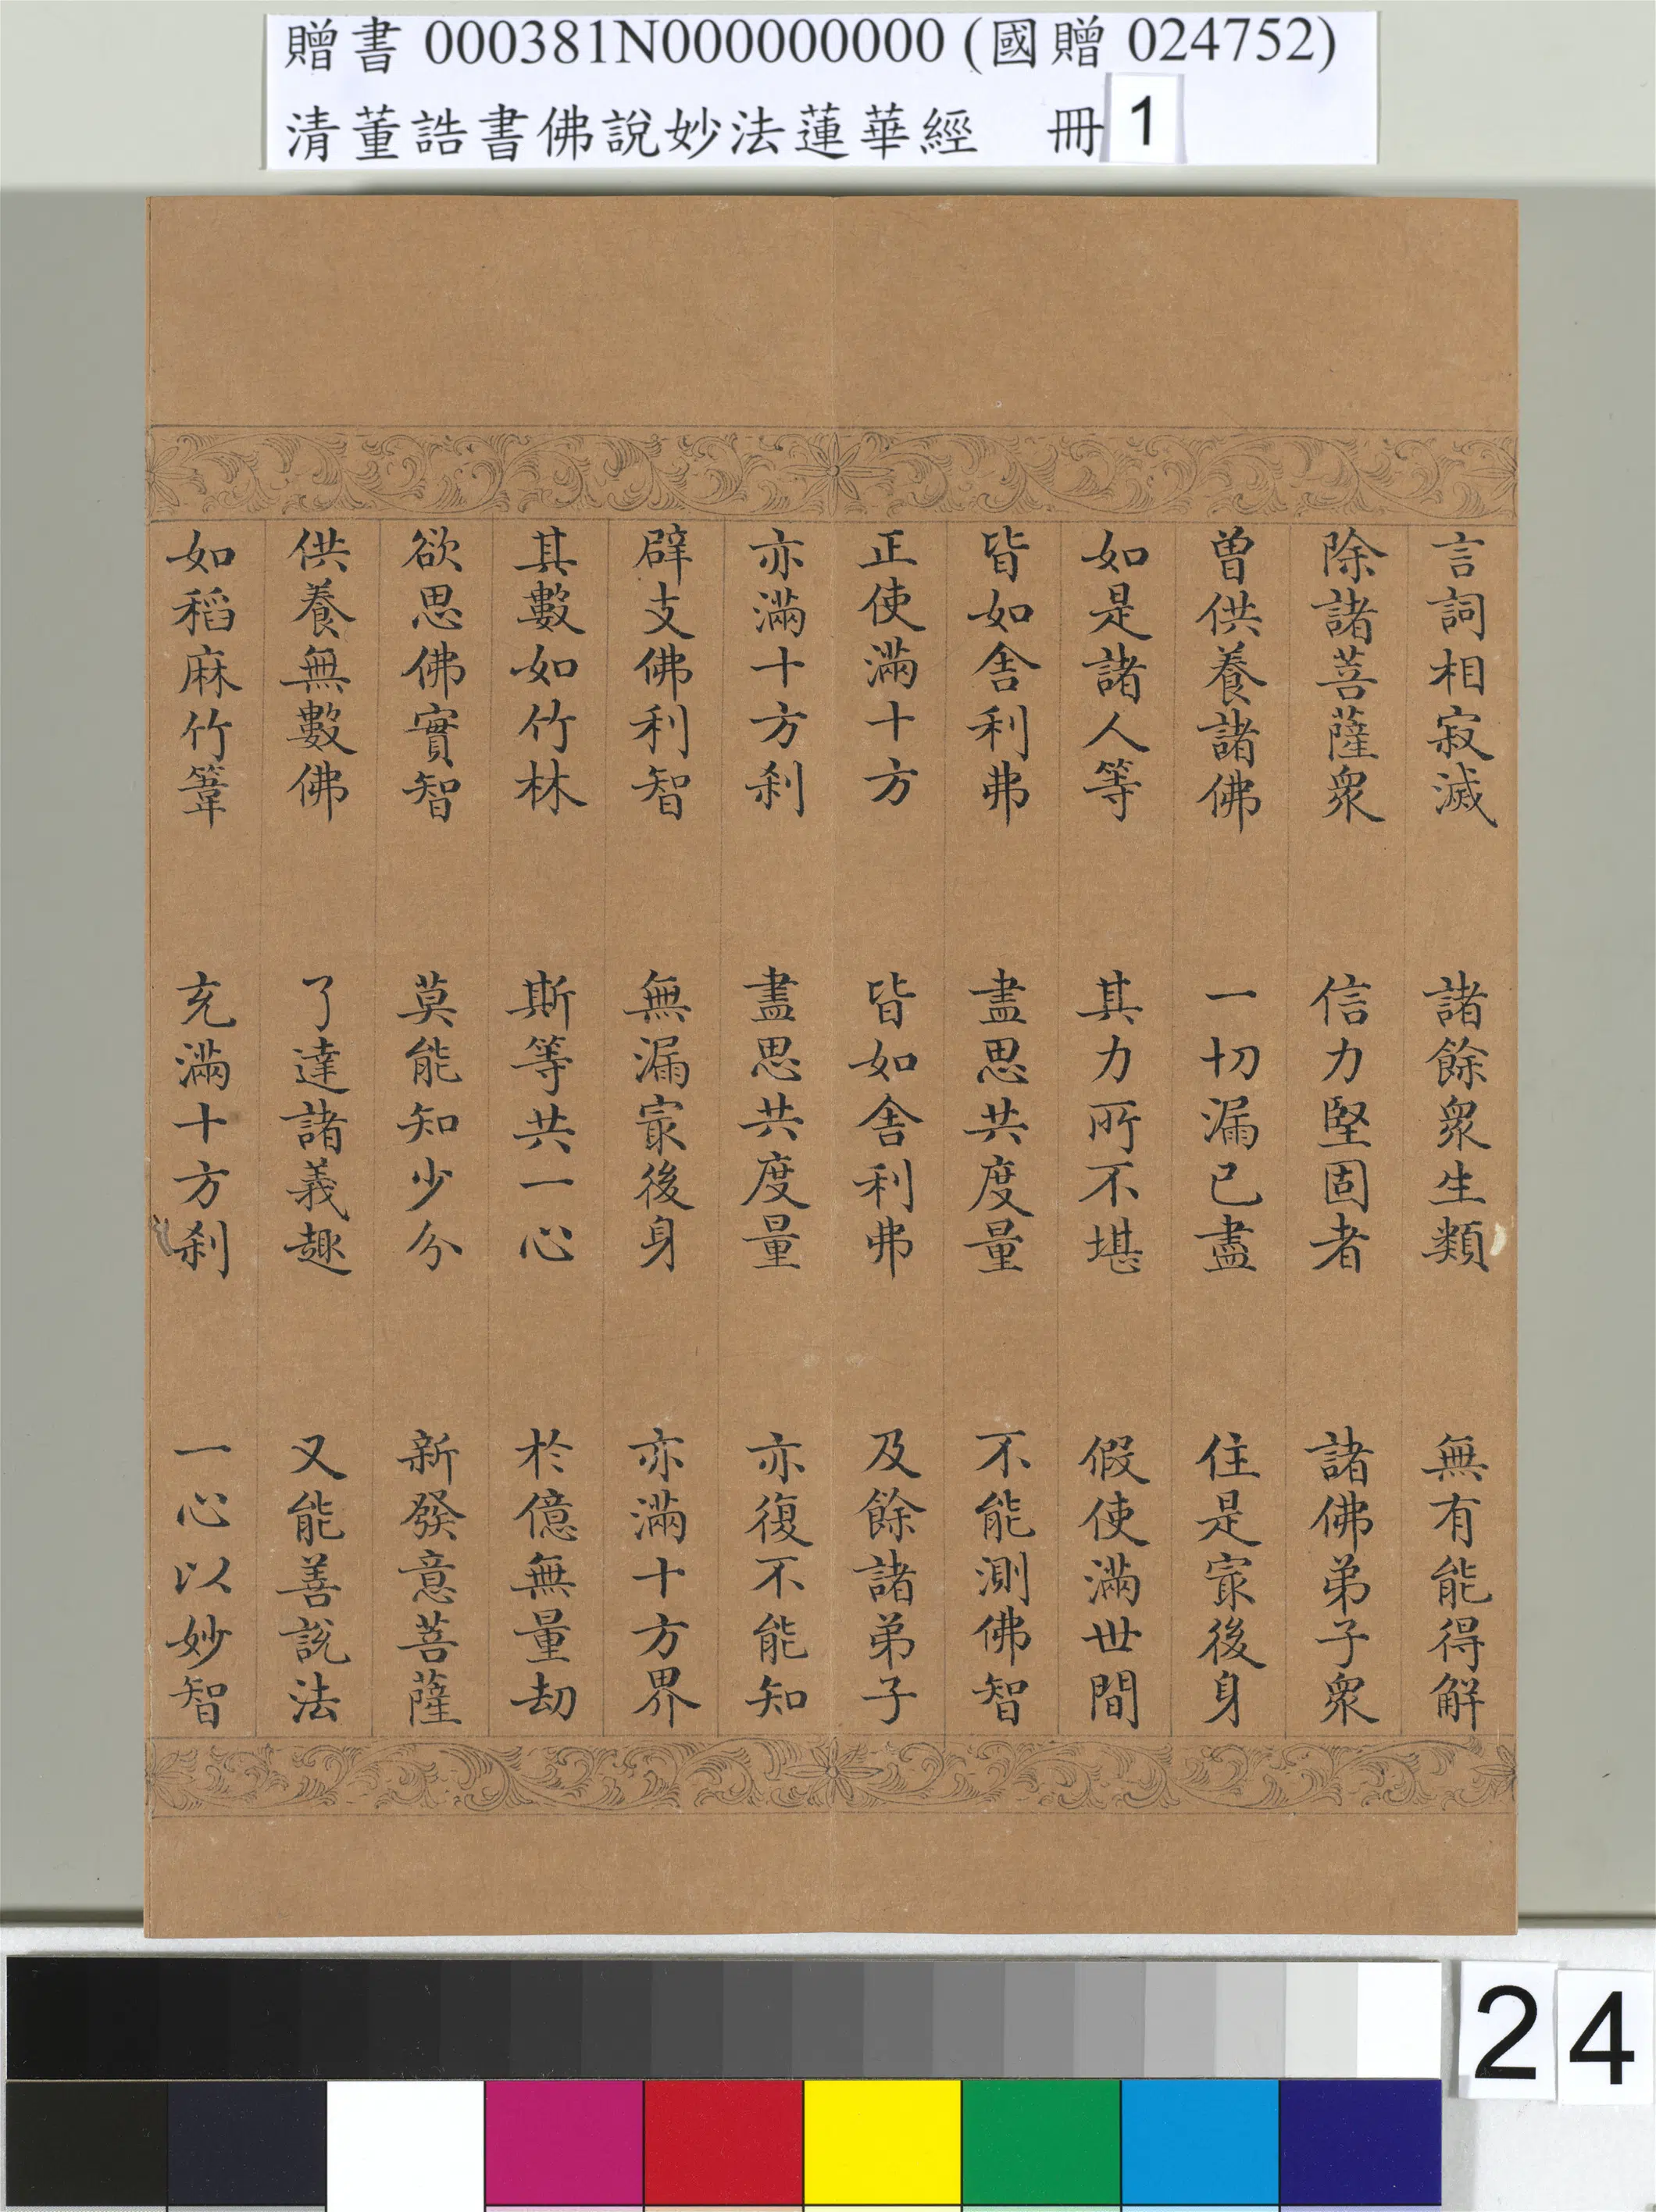 贈書 000381N000000000 (國贈 024752)
清董誥書佛說妙法蓮華經 冊1
言詞相寂滅 諸餘衆生類 無有能得解
除諸菩薩衆 信力堅固者 諸佛弟子衆
曾供養諸佛 一切漏已盡 住是冣後身
如是諸人等 其力所不堪 假使滿世間
皆如舍利弗 盡思共度量 不能測佛智
正使滿十方 皆如舍利弗 及餘諸弟子
亦滿十方刹 盡思共度量 亦復不能知
辟支佛利智 無漏冣後身 亦滿十方界
其數如竹林 斯等共一心 於億無量劫
欲思佛實智 莫能知少分 新發意菩薩
供養無數佛 了達諸義趣 又能善說法
如稻麻竹葦 充滿十方刹 一心以妙智
24